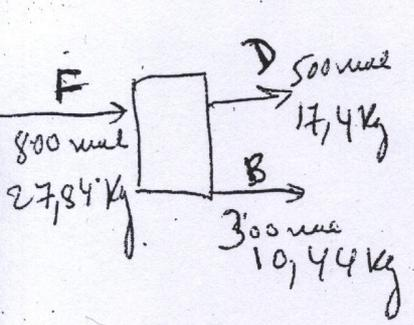 F
800 mol
27,84 Kg
D
500 mol
17,4 Kg
B
300 mol
10,44 Kg